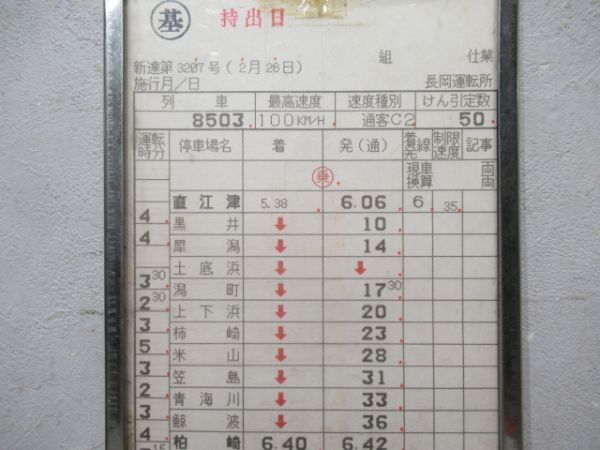 基 持出日
組 仕業
新達第3207号(2月26日)
施行月/日 長岡運転所
列車 最高速度 速度種別 けん引定数
8503 100KM/H 通客C2 50
運転時分 停車場名 着 発(通) 着発線 制限速度 記事
乗 現車 両
換算 両
直江津 5.38 6.06 6 35
4 黒井 ↓ 10
4 犀潟 ↓ 14
土底浜 ↓ ↓
3 30 潟町 ↓ 17 30
2 30 上下浜 ↓ 20
3 柿崎 ↓ 23
5 米山 ↓ 28
3 笠島 ↓ 31
2 青海川 ↓ 33
3 鯨波 ↓ 36
4 柏崎 6.40 6.42
15